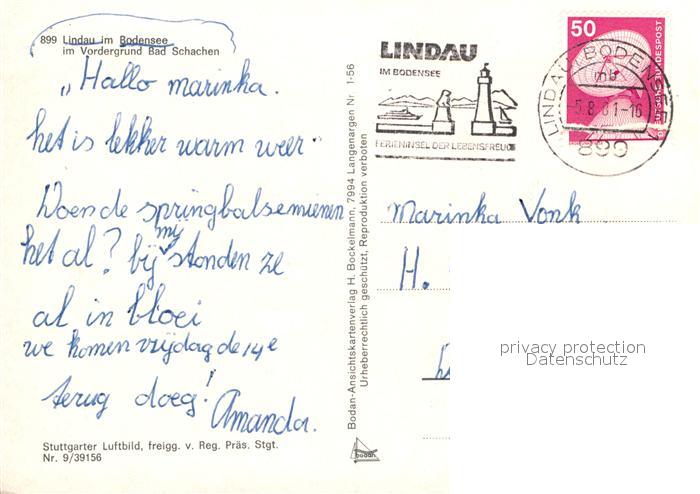 899 Lindau im Bodensee
im Vordergrund Bad Schachen
„Hallo marinka.
het is lekker warm weer.
Doen de springbalsemienen
het al? bij my stonden ze
al in bloei
we komen vrijdag de 14e
terug doeg!
Amanda.
Stuttgarter Luftbild, freigg. v. Reg. Präs. Stgt.
Nr. 9/39156
Bodan-Ansichtskartenverlag H. Bockelmann, 7994 Langenargen Nr. 1-56
Urheberrechtlich geschützt, Reproduktion verboten
bodan
LINDAU
IM BODENSEE
FERIENINSEL DER LEBENSFREUDE
50
DEUTSCHE BUNDESPOST
LINDAU, BODENS
mb
-5.8.81-16
899
Marinka Vonk
H.
privacy protection
Datenschutz